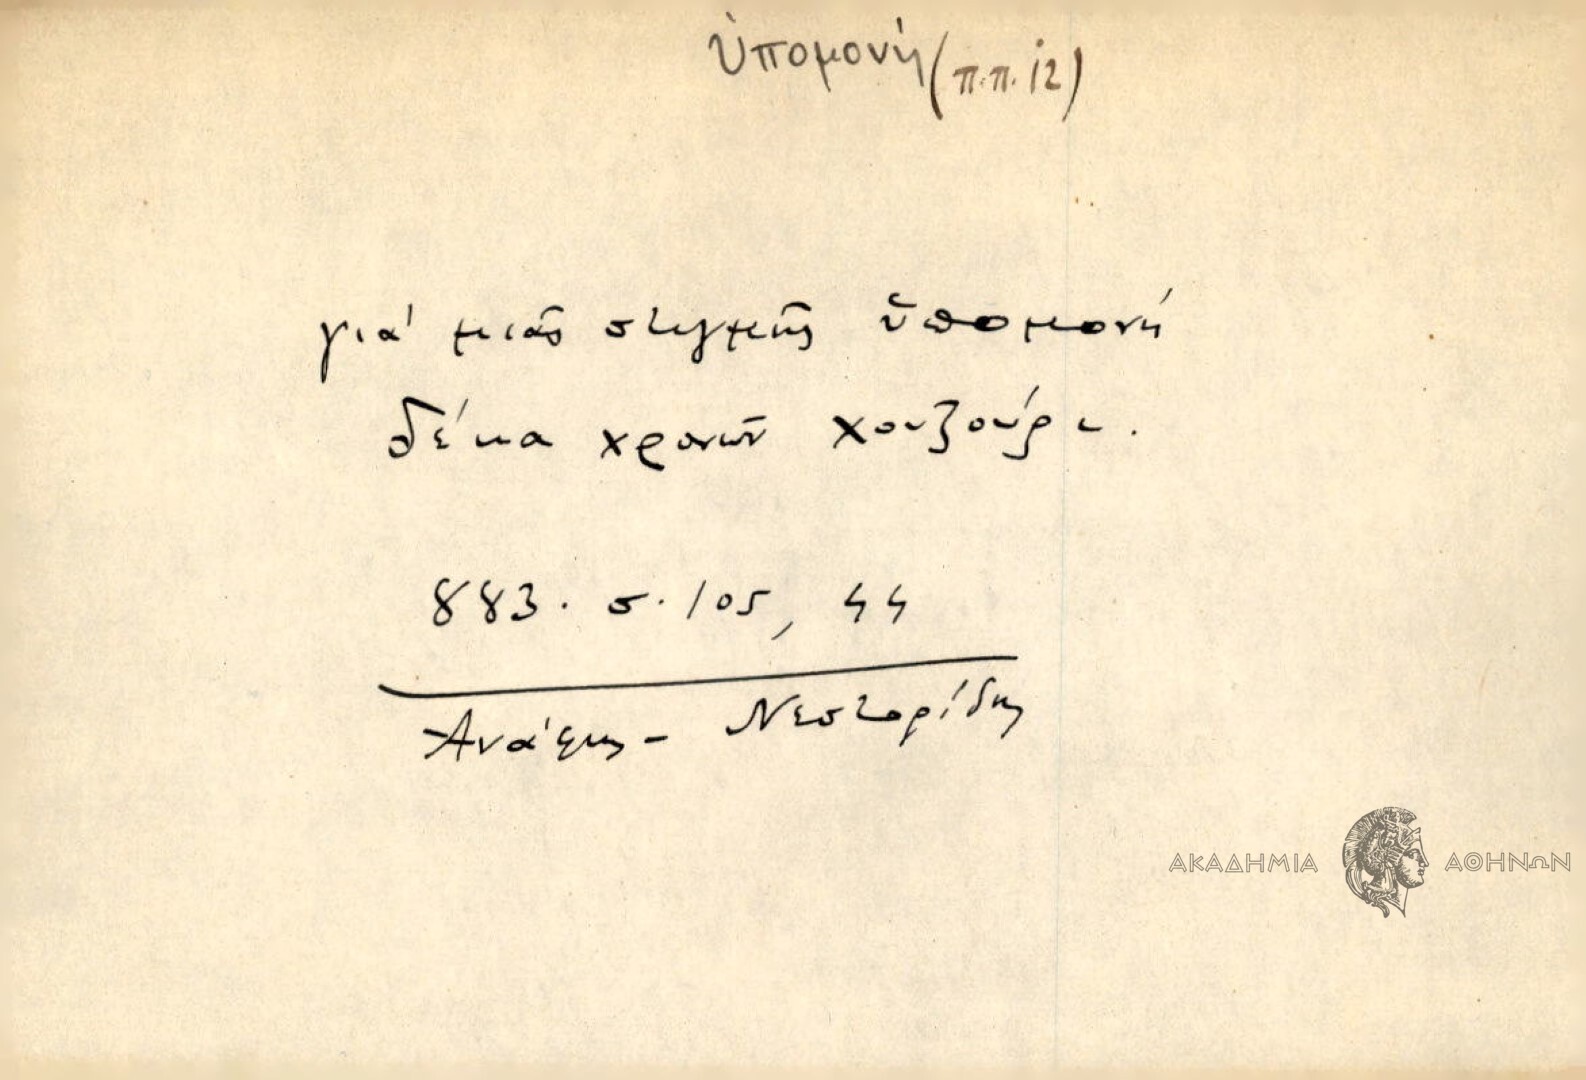 ὑπομονή (π.π. 12)
γιά μιᾶς στιγμῆς ὑπομονή
δέκα χρονῶν χουζούρι.
883. σ. 105, 44
Νεστορίδης
ΑΚΑΔΗΜΙΑ ΑΘΗΝΩΝ